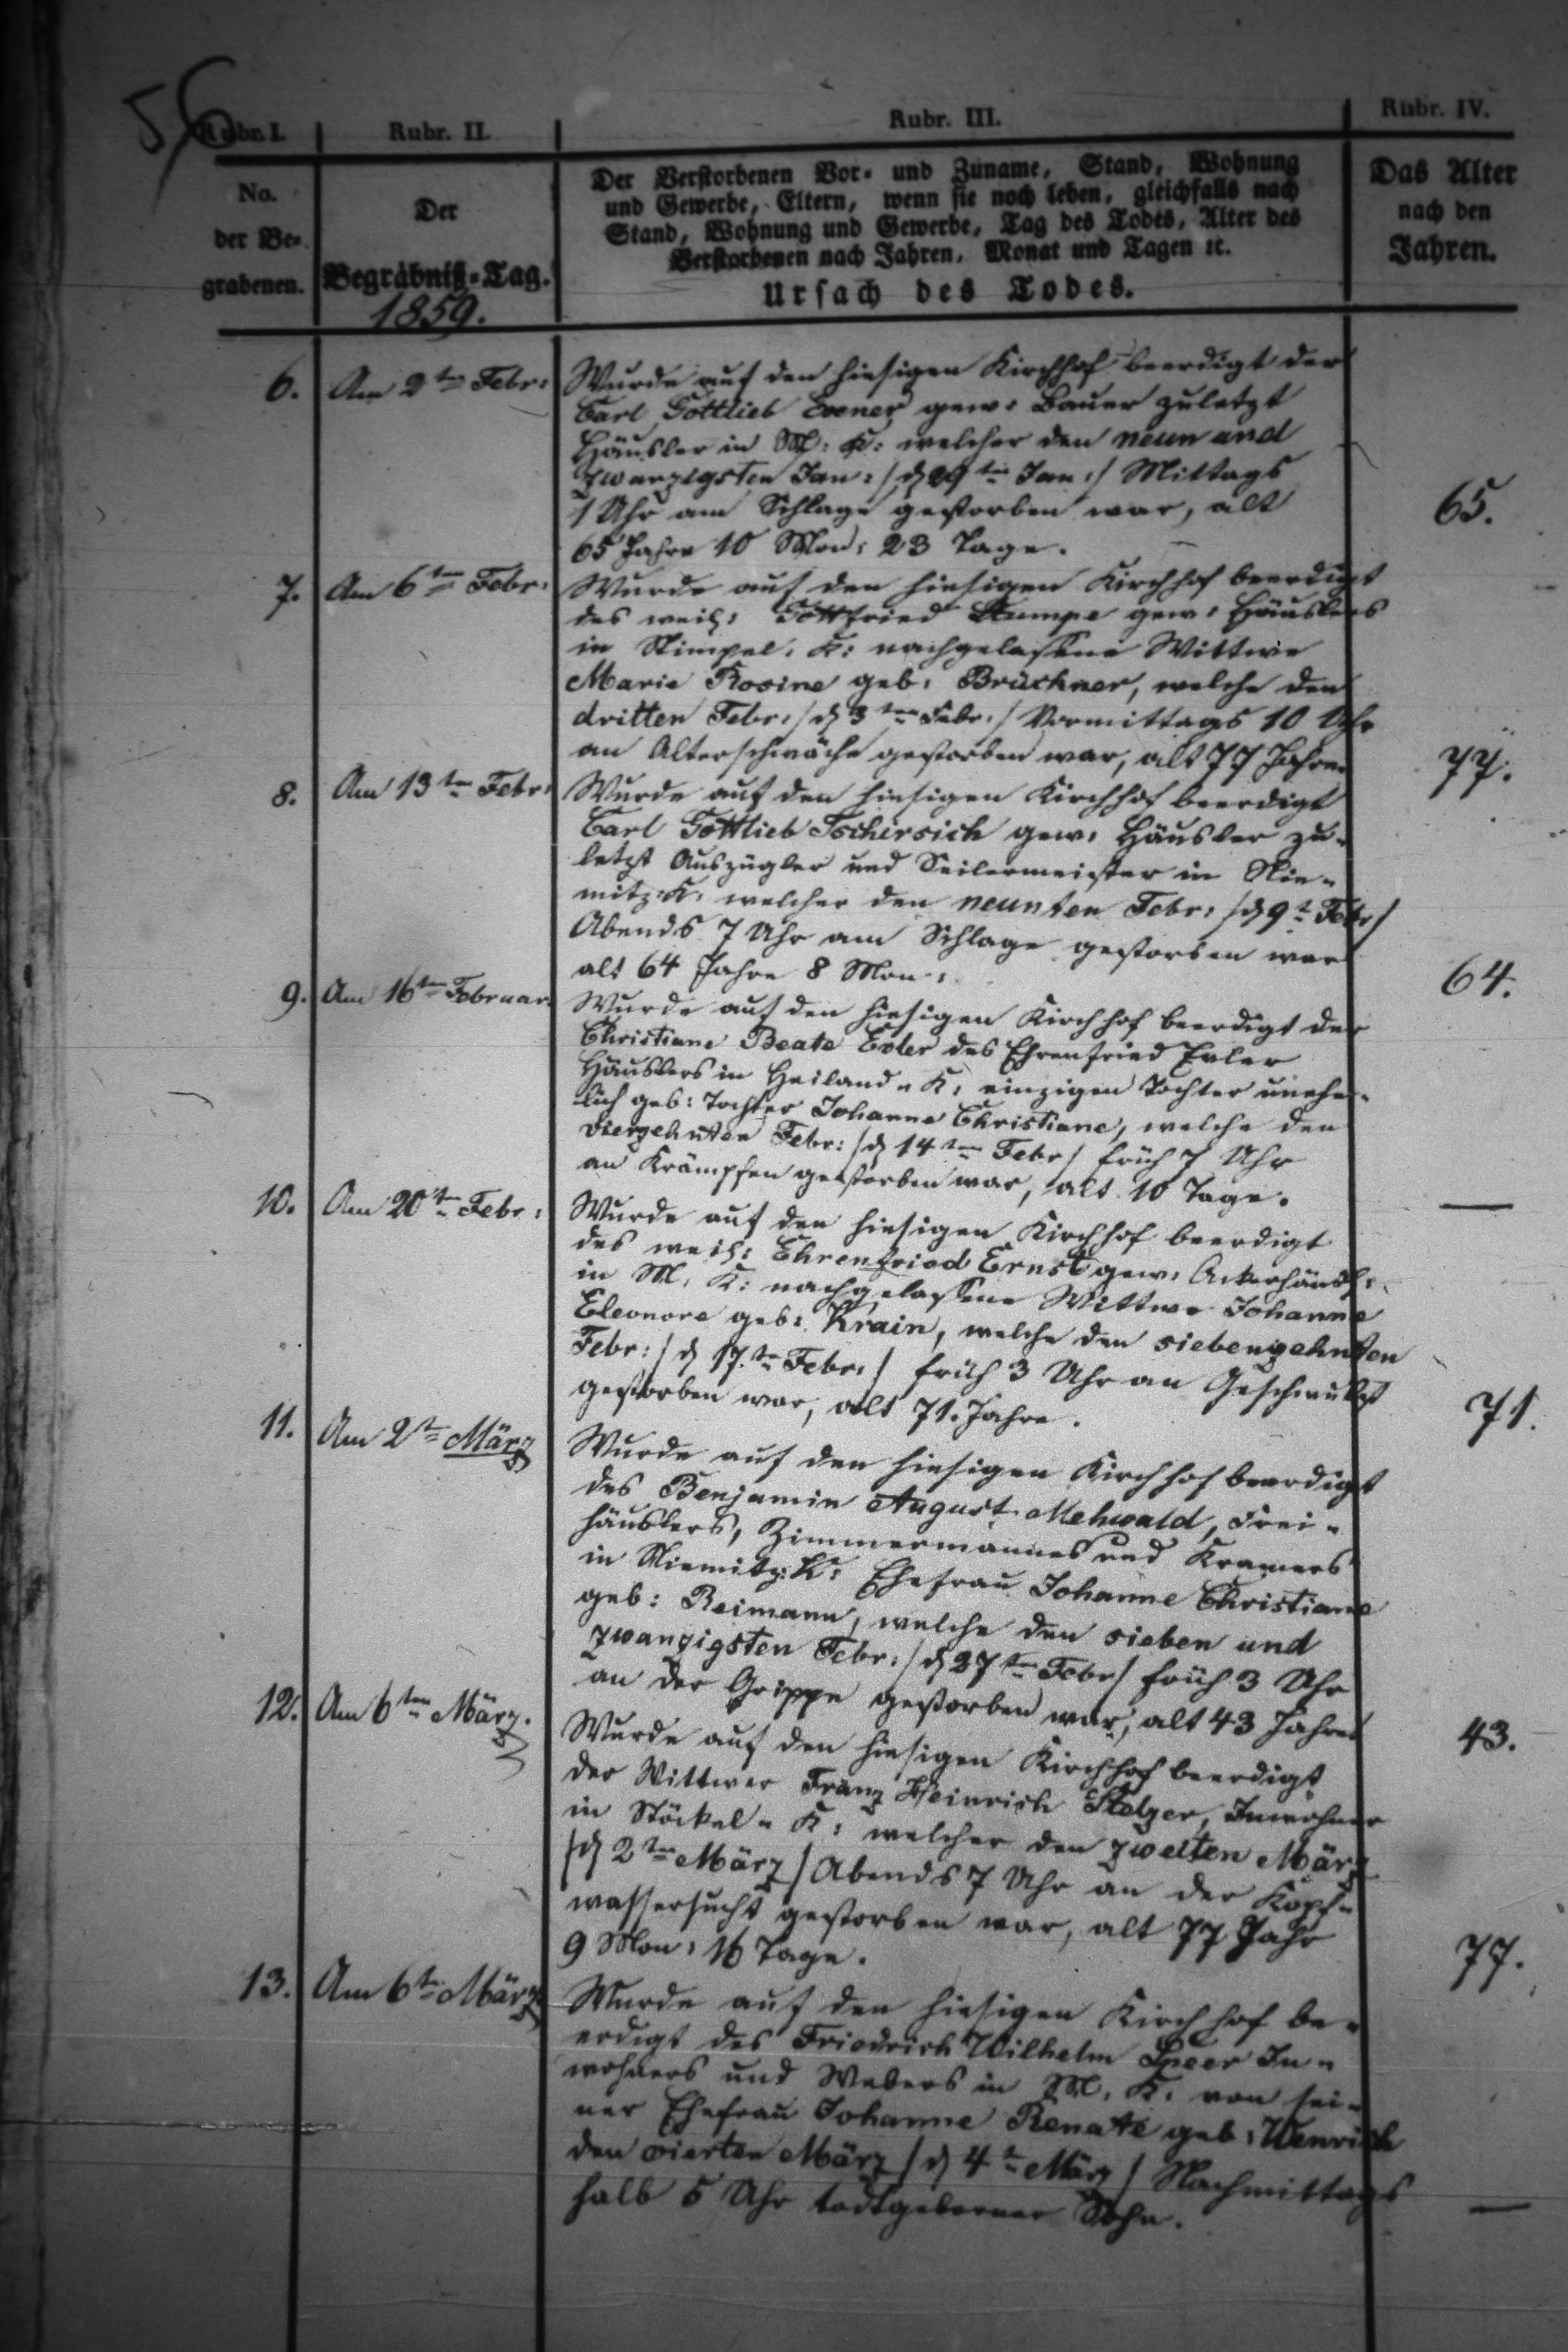 56
Rubr. I. Rubr. II. Rubr. III. Rubr. IV.
No.
der Be-
grabenen.
Der
Begräbniß-Tag.
1859.
Der Verstorbenen Vor- und Zuname, Stand, Wohnung
und Gewerbe, Eltern, wenn sie noch leben, gleichfalls nach
Stand, Wohnung und Gewerbe, Tag des Todes, Alter des
Verstorbenen nach Jahren, Monat und Tagen ꝛc.
Ursach des Todes.
Das Alter
nach den
Jahren.
6. Am 2ten Febr: Wurde auf den hiesigen Kirchhof beerdigt der
Carl Gottlieb Exner gew: Bauer zuletzt
Häusler in M: K: welcher den neun und
zwanzigsten Jan: /d 29ten Jan:/ Mittags
1 Uhr am Schlage gestorben war, alt 65.
65 Jahre 10 Mon: 23 Tage.
7. Am 6ten Febr: Wurde auf den hiesigen Kirchhof beerdigt
des weil: Gottfried gew: Häuslers
in K: nachgelassene Wittwe
Marie Rosine geb: Brückner, welche den
dritten Febr: /d 3ten Febr:/ Vormittags 10 Uhr
an Altersschwäche gestorben war, alt 77 Jahre 77.
8. Am 13ten Febr: Wurde auf den hiesigen Kirchhof beerdigt
Carl Gottlieb Tschirsich gew: Häusler zu-
letzt Auszügler und Seilermeister in Nie-
mitz: K: welcher den neunten Febr: /d 9t Febr/
Abends 7 Uhr am Schlage gestorben war
alt 64 Jahre 8 Mon: 64.
9. Am 16ten Februar. Wurde auf den hiesigen Kirchhof beerdigt der
Christiane Beate Exler des Ehrenfried Exler
Häuslers in Heiland-K: einzigen Tochter unehe-
lich geb: Tochter Johanne Christiane, welche den
vierzehnten Febr: /d 14ten Febr/ früh 7 Uhr
an Krämpfen gestorben war, alt 10 Tage. —
10. Am 20ten Febr: Wurde auf den hiesigen Kirchhof beerdigt
des weil: Ehrenfried Ernst gew: Ackerhäusl:
in M: K: nachgelassene Wittwe Johanne
Eleonore geb: Krain, welche den siebenzehnten
Febr: /d 17ten Febr:/ früh 3 Uhr an Geschwulst
gestorben war, alt 71. Jahre. 71.
11. Am 2t März Wurde auf den hiesigen Kirchhof beerdigt
des Benjamin August Mehwald, Frei-
häuslers, Zimmermannes und Kramers
in Niemitz: K: Ehefrau Johanne Christiane
geb: Reimann, welche den sieben und
zwanzigsten Febr: /d 27ten Febr/ früh 3 Uhr
an der Grippe gestorben war, alt 43 Jahre 43.
12. Am 6ten März. Wurde auf den hiesigen Kirchhof beerdigt
der Wittwer Franz Heinrich Stelzer, Inwohner
in Stöckel-K: welcher den zweiten März
/d 2ten März/ Abends 7 Uhr an der Kopf-
wassersucht gestorben war, alt 77 Jahr
9 Mon: 16 Tage. 77.
13. Am 6t März Wurde auf den hiesigen Kirchhof be-
erdigt des Friedrich Wilhelm Speer In-
wohners und Webers in M: K: von sei-
ner Ehefrau Johanne Renate geb: Wenrich
den vierten März /d 4t März/ Nachmittags
halb 5 Uhr todtgeborner Sohn. —